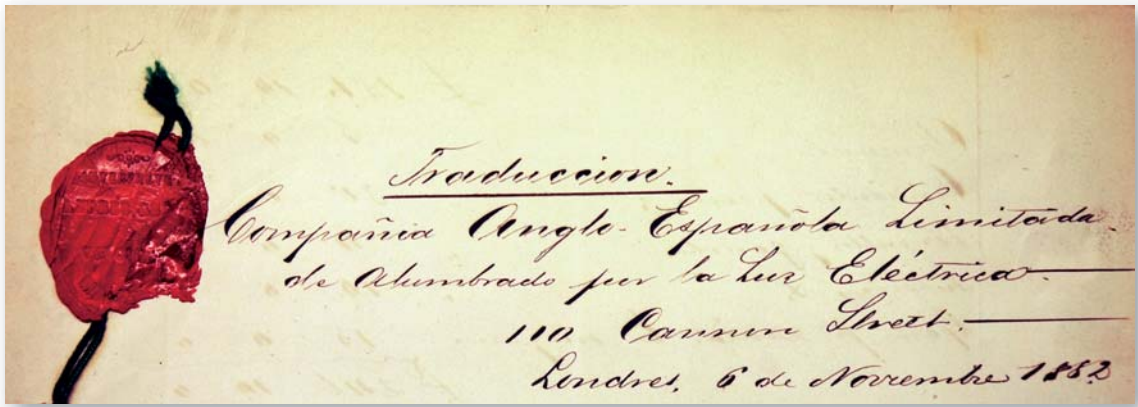 Traduccion.
Compañia Anglo-Española Limitada
de Alumbrado por la Luz Eléctrica.
110 Cannon Street.
Londres, 6 de Noviembre 1882